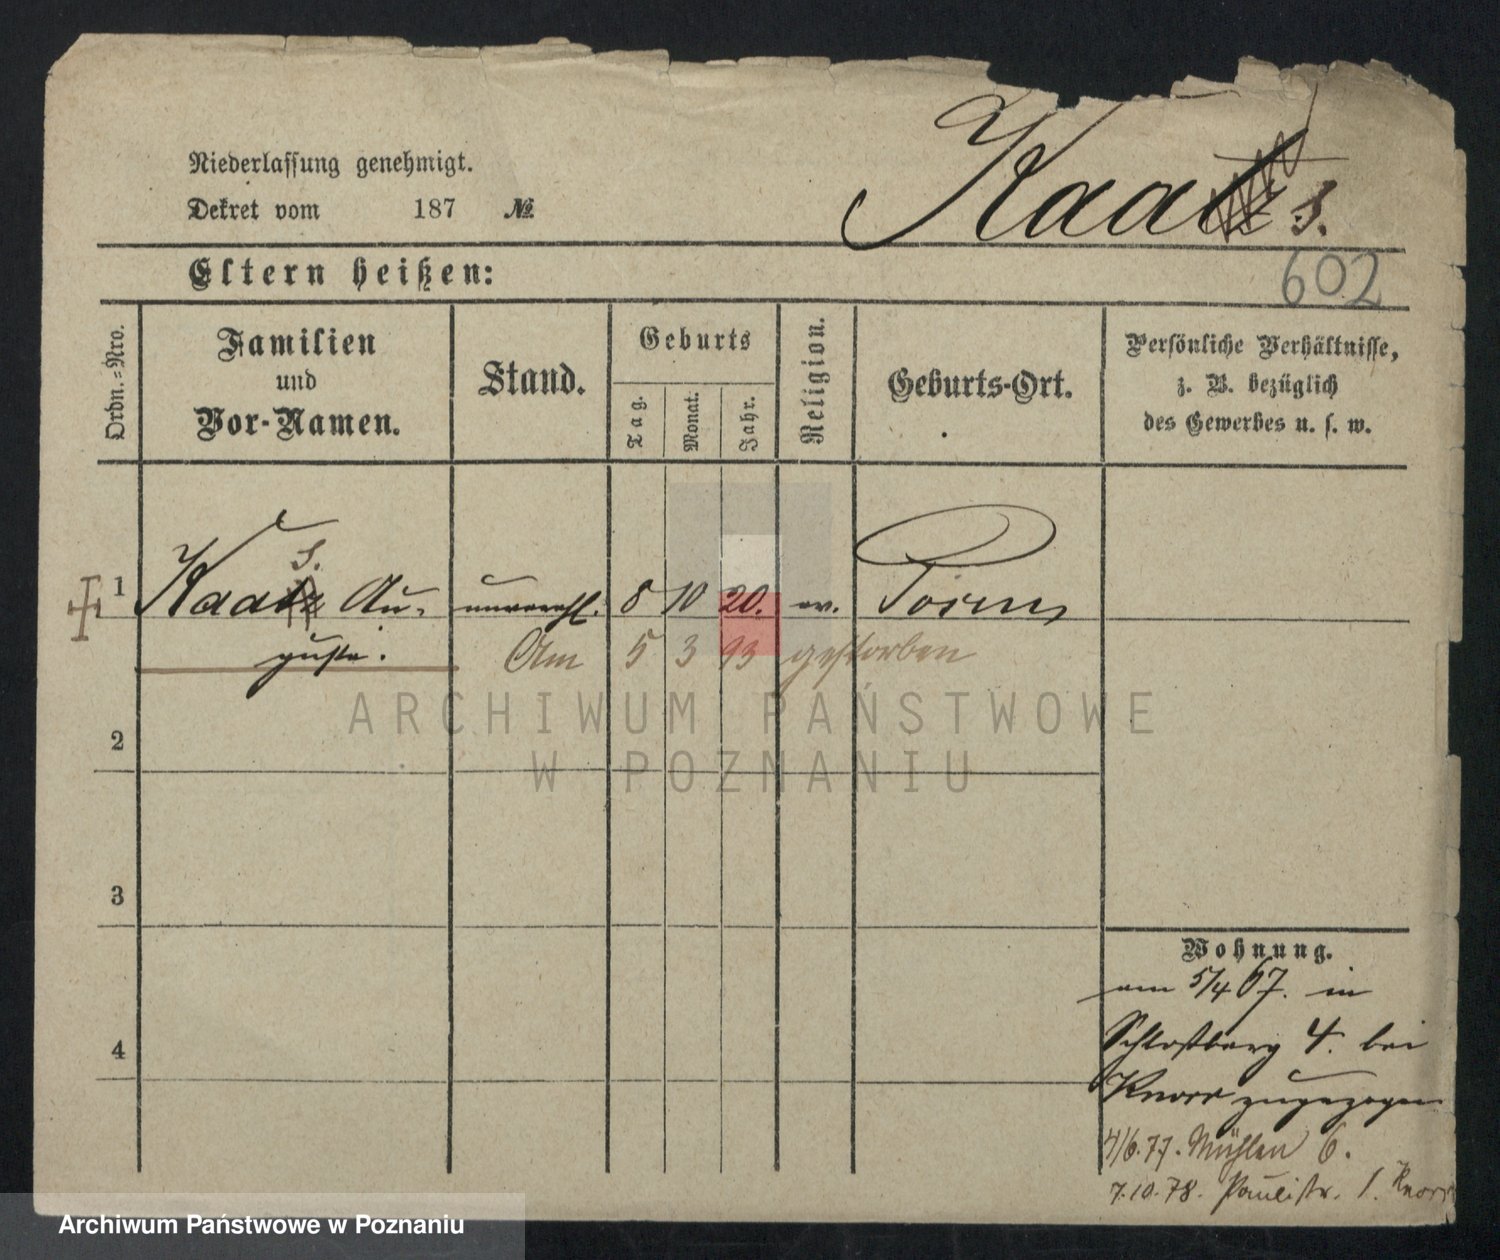 Niederlassung genehmigt.
Dekret vom 187 №
Kaatz s.
602
Eltern heißen:
Ordn.-Nro.
Familien
und
Vor-Namen.
Stand.
Geburts
Tag.
Monat.
Jahr.
Religion.
Geburts-Ort.
Persönliche Verhältnisse,
z. B. bezüglich
des Gewerbes u. s. w.
s.
1 Kaatz Au- unverehl. 8 10 20. ev. Posen
guste. Am 5 3 93 gestorben
ARCHIWUM PAŃSTWOWE
W POZNANIU
2
3
4
Wohnung.
am 5/4 67. in
Schloßberg 4. bei
Knorr zugezogen
4/6.77. Mühlen 6.
7.10.78. Paulistr. 1. Knorr
Archiwum Państwowe w Poznaniu